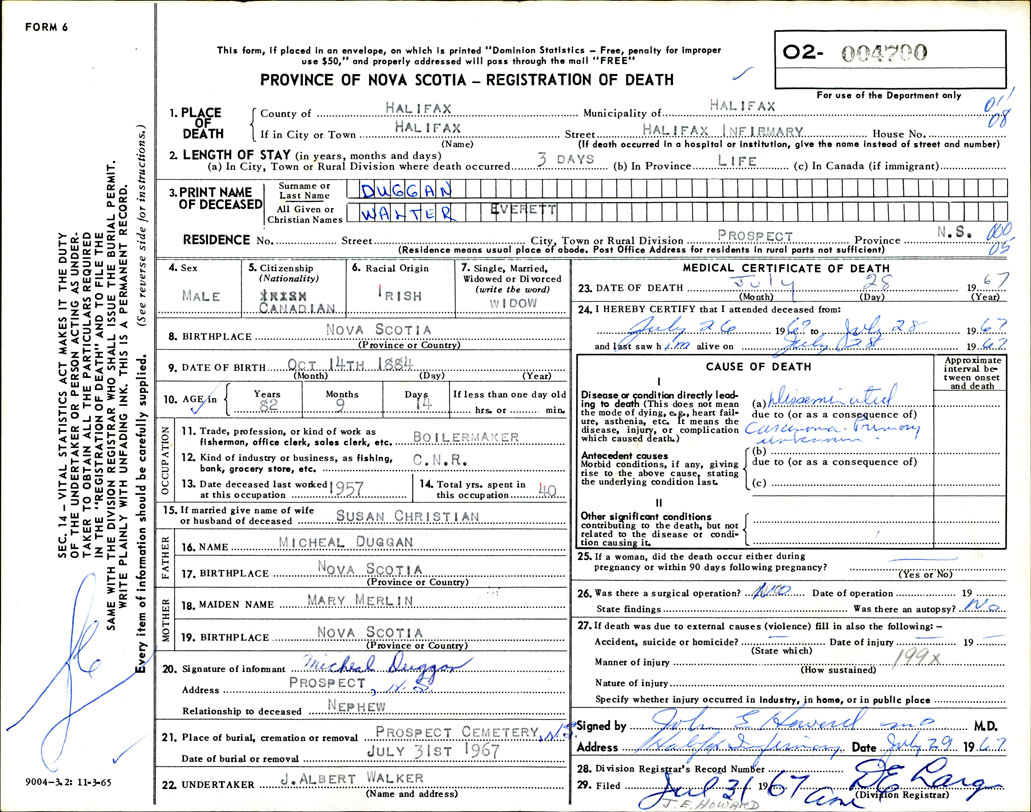 FORM 6
This form, if placed in an envelope, on which is printed "Dominion Statistics – Free, penalty for improper
use $50," and properly addressed will pass through the mail "FREE"
PROVINCE OF NOVA SCOTIA – REGISTRATION OF DEATH
O2- 004700
For use of the Department only
011
08
1. PLACE OF DEATH County of HALIFAX Municipality of HALIFAX
If in City or Town HALIFAX Street HALIFAX INFIRMARY House No.
(Name) (If death occurred in a hospital or institution, give the name instead of street and number)
2. LENGTH OF STAY (in years, months and days)
(a) In City, Town or Rural Division where death occurred 3 DAYS (b) In Province LIFE (c) In Canada (if immigrant)
3. PRINT NAME OF DECEASED Surname or Last Name DUGGAN
All Given or Christian Names WALTER EVERETT
RESIDENCE No. Street City, Town or Rural Division PROSPECT Province N.S. 000
05
(Residence means usual place of abode. Post Office Address for residents in rural parts not sufficient)
4. Sex MALE
5. Citizenship (Nationality) IRISH CANADIAN
6. Racial Origin IRISH
7. Single, Married, Widowed or Divorced (write the word) WIDOW
8. BIRTHPLACE NOVA SCOTIA
(Province or Country)
9. DATE OF BIRTH OCT 14TH 1884
(Month) (Day) (Year)
10. AGE in Years 82 Months 9 Days 14 If less than one day old hrs. or min.
OCCUPATION
11. Trade, profession, or kind of work as fisherman, office clerk, sales clerk, etc. BOILERMAKER
12. Kind of industry or business, as fishing, bank, grocery store, etc. C.N.R.
13. Date deceased last worked at this occupation 1957
14. Total yrs. spent in this occupation 40
15. If married give name of wife or husband of deceased SUSAN CHRISTIAN
FATHER
16. NAME MICHEAL DUGGAN
17. BIRTHPLACE NOVA SCOTIA
(Province or Country)
MOTHER
18. MAIDEN NAME MARY MERLIN
19. BIRTHPLACE NOVA SCOTIA
(Province or Country)
20. Signature of informant Micheal Duggan
Address PROSPECT, N.S.
Relationship to deceased NEPHEW
21. Place of burial, cremation or removal PROSPECT CEMETERY, N.S.
Date of burial or removal JULY 31ST 1967
22. UNDERTAKER J. ALBERT WALKER
(Name and address)
MEDICAL CERTIFICATE OF DEATH
23. DATE OF DEATH July 28 1967
(Month) (Day) (Year)
24. I HEREBY CERTIFY that I attended deceased from:
July 26 1967 to July 28 1967
and last saw him alive on July 28 1967
CAUSE OF DEATH
Approximate interval between onset and death
I
Disease or condition directly leading to death (This does not mean the mode of dying, e.g., heart failure, asthenia, etc. It means the disease, injury, or complication which caused death.)
(a) Disseminated
due to (or as a consequence of)
Carcinoma - Primary
unknown.
Antecedent causes
Morbid conditions, if any, giving rise to the above cause, stating the underlying condition last.
(b)
due to (or as a consequence of)
(c)
II
Other significant conditions
contributing to the death, but not related to the disease or condition causing it.
25. If a woman, did the death occur either during
pregnancy or within 90 days following pregnancy?
(Yes or No)
26. Was there a surgical operation? No Date of operation 19
State findings Was there an autopsy? No
27. If death was due to external causes (violence) fill in also the following: –
Accident, suicide or homicide? Date of injury 19
(State which)
Manner of injury 199x
(How sustained)
Nature of injury
Specify whether injury occurred in industry, in home, or in public place
Signed by John E Howard MD M.D.
Address Halifax Infirmary Date July 29 1967
28. Division Registrar's Record Number
29. Filed Jul 31 1967
(Division Registrar)
J.E. HOWARD
SEC. 14 – VITAL STATISTICS ACT MAKES IT THE DUTY
OF THE UNDERTAKER OR PERSON ACTING AS UNDER-
TAKER TO OBTAIN ALL THE PARTICULARS REQUIRED
IN THE "REGISTRATION OF DEATH" AND TO FILE THE
SAME WITH THE DIVISION REGISTRAR WHO SHALL ISSUE THE BURIAL PERMIT.
WRITE PLAINLY WITH UNFADING INK. THIS IS A PERMANENT RECORD.
Every item of information should be carefully supplied. (See reverse side for instructions.)
9004-3.2: 11-3-65